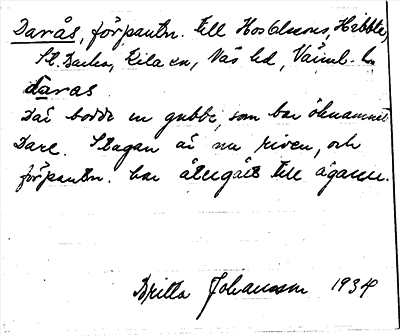 Darås, förpantn. till Hos Olssons, Hebbla,
St. Backa, Kila sn, Näs hd, Värml. l.
daras
Där bodde en gubbe, som bar öknamnet
Dare. Stugan är nu riven, och
förpantn. har återgått till ägaren.
Britta Johansson 1934